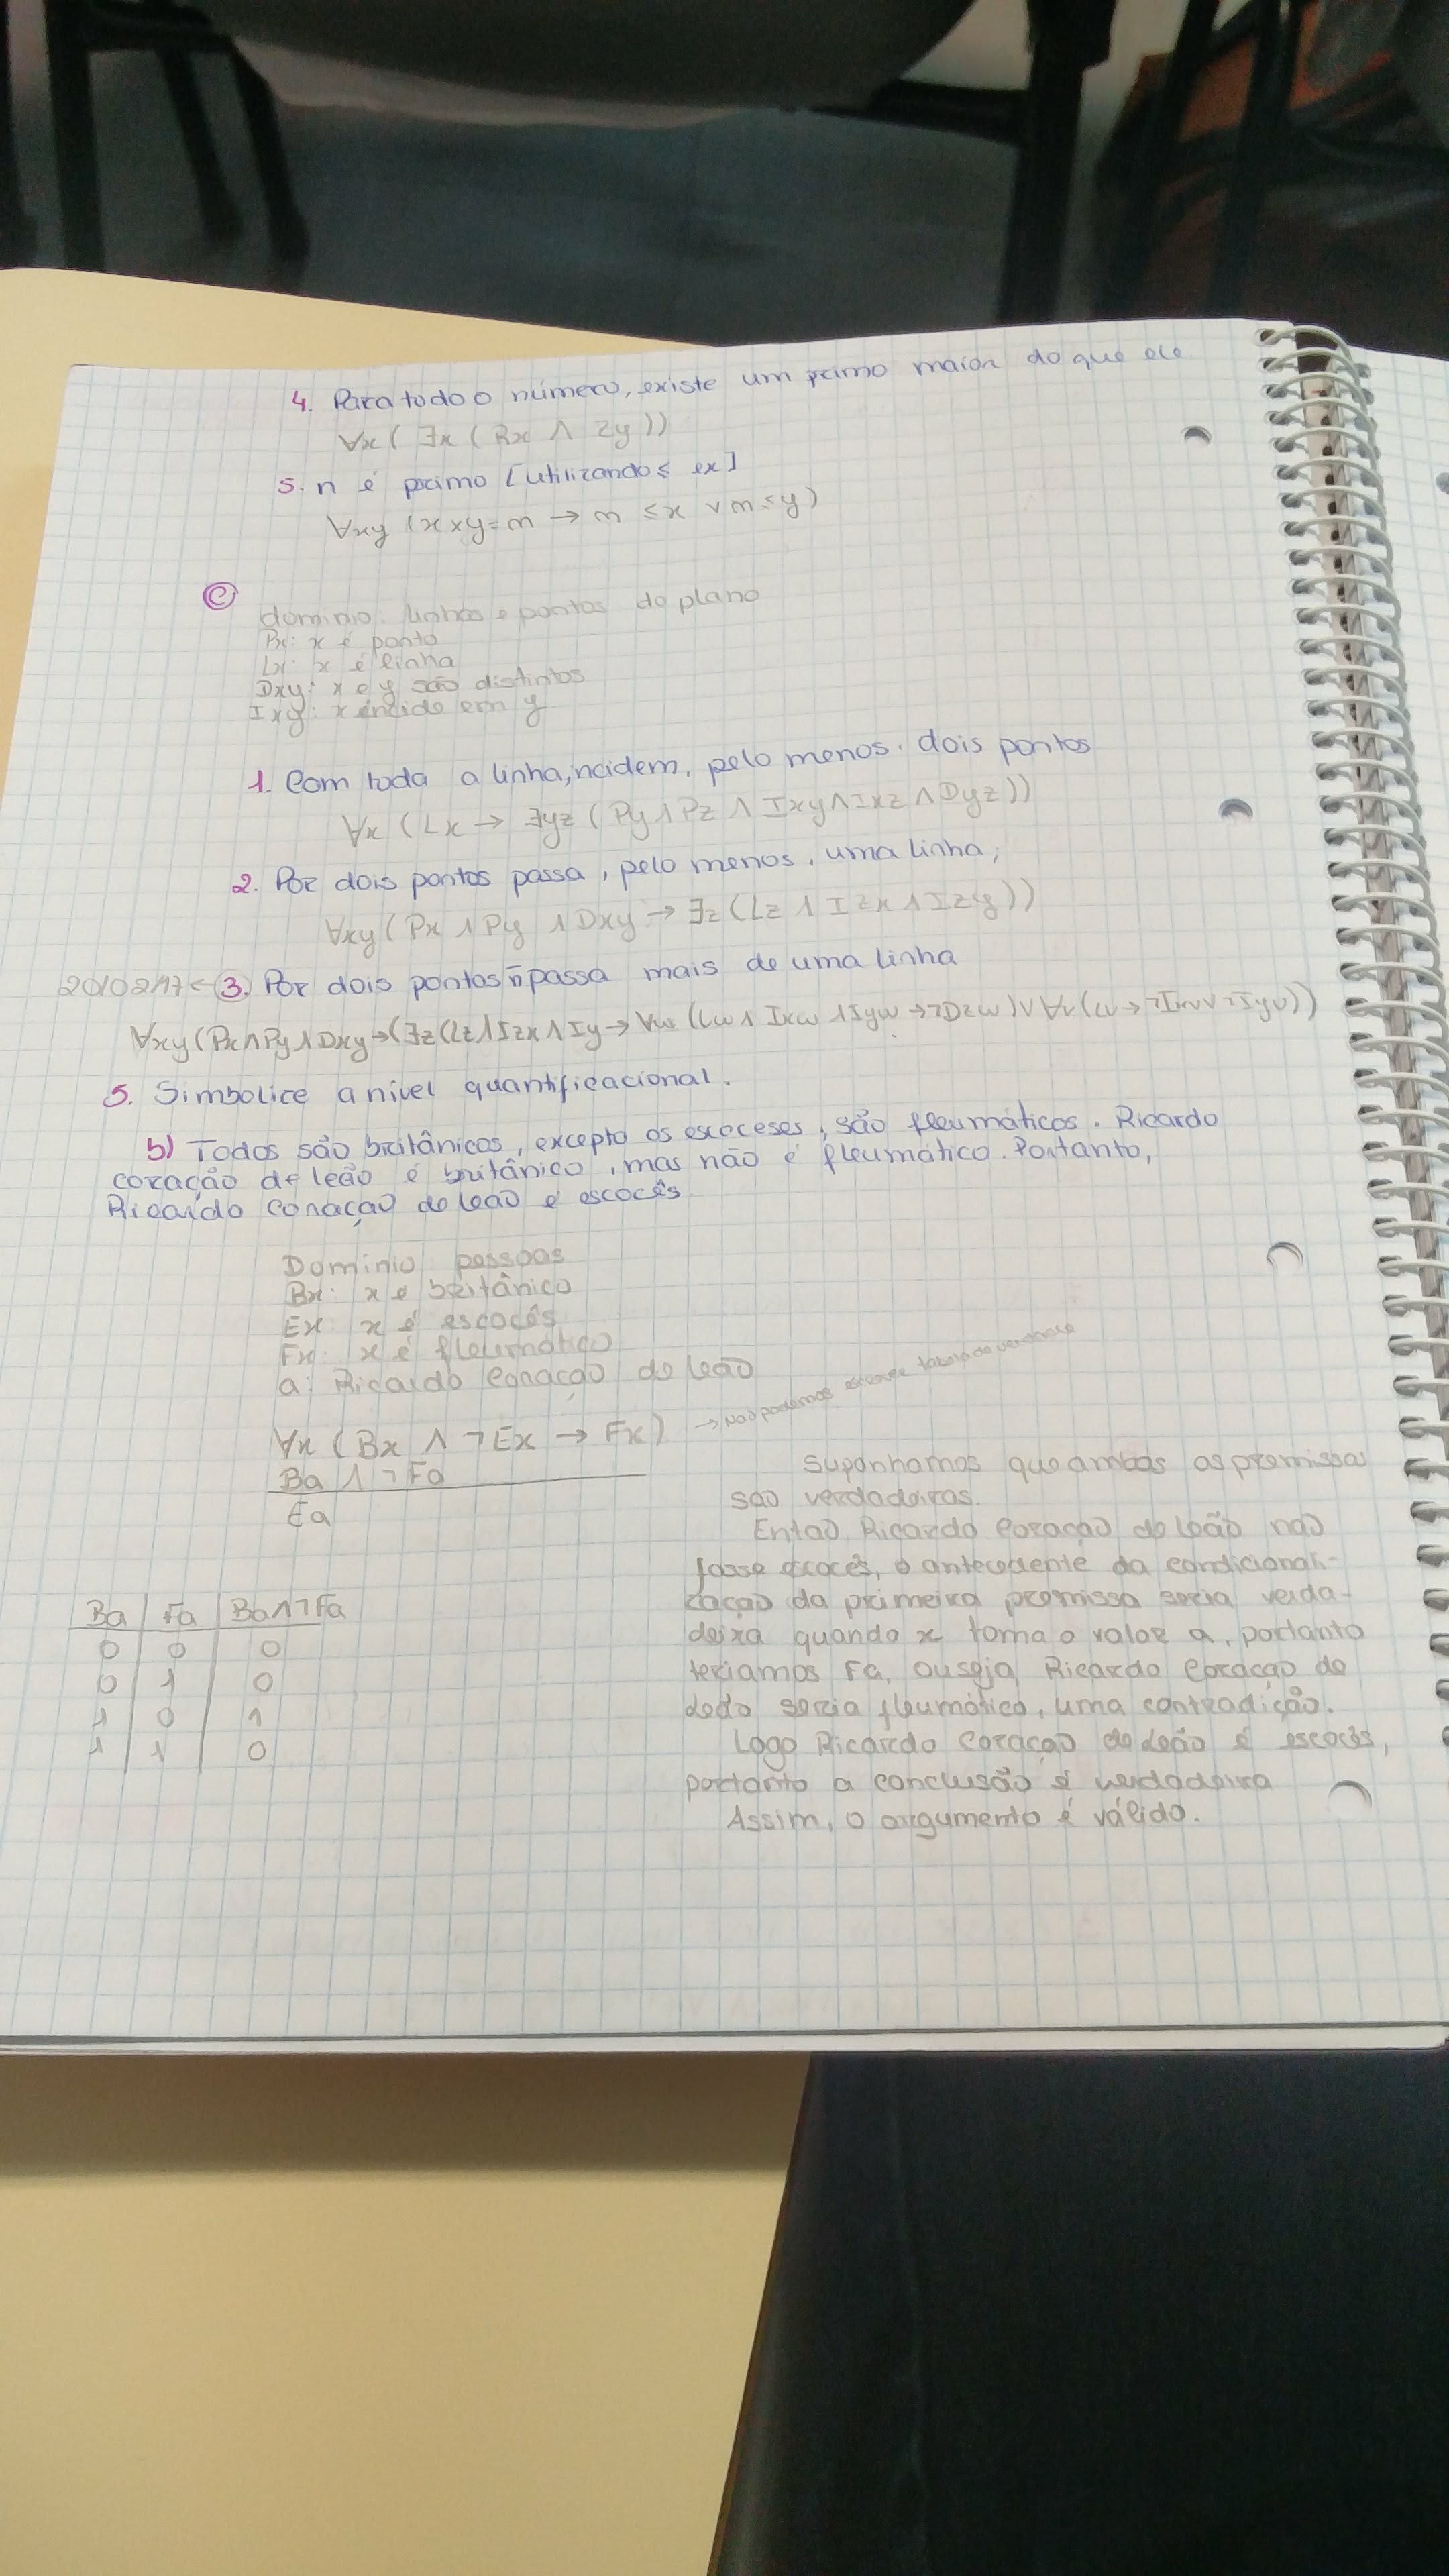 4. Para todo o número, existe um primo maior do que ele
∀x( ∃x ( Rx ∧ Zy ))
5. n é primo [utilizando ≤ ex]
∀xy (x×y=m → m ≤x ∨ m≤y)
C
domínio: linhas e pontos do plano
Px: x é ponto
Lx: x é linha
Dxy: x e y são distintos
Ixy: x incide em y
1. Com toda a linha, ncidem, pelo menos, dois pontos
∀x (Lx → ∃yz (Py∧Pz ∧ Ixy∧Ixz ∧Dyz))
2. Por dois pontos passa, pelo menos, uma linha;
∀xy (Px ∧Py ∧Dxy → ∃z (Lz ∧ Izx ∧ Izy))
20/02/17 ← 3. Por dois pontos ñ passa mais de uma linha
∀xy (Px∧Py∧Dxy→(∃z(Lz∧Izx∧Iy→∀w (Lw∧ Ixw ∧Iyw →¬Dzw)∨∀v(Lv→¬Ixv∨¬Iyv))
5. Simbolice a nível quantificacional.
b) Todos são britânicos, excepto os escoceses, são fleumáticos. Ricardo
coração de leão é britânico, mas não é fleumático. Portanto,
Ricardo Coração de leão é escocês
Domínio: pessoas
Bx: x é britânico
Ex: x é escocês
Fx: x é fleumático
a: Ricardo Coração de leão
∀x (Bx ∧ ¬Ex → Fx) → Não podemos escrever tabela de verdade
Ba ∧ ¬Fa
Ea
Suponhamos que ambas as premissas
são verdadeiras.
Então, Ricardo Coração de leão não
fosse escocês, o antecedente da condicionali-
zação da primeira premissa seria verda-
deira quando x toma o valor a, portanto
teríamos Fa, ou seja, Ricardo Coração de
Leão seria fleumático, uma contradição.
Logo Ricardo Coração de Leão é escocês,
portanto a conclusão é verdadeira
Assim, o argumento é válido.
Ba | Fa | Ba∧¬Fa
0 | 0 | 0
0 | 1 | 0
1 | 0 | 1
1 | 1 | 0